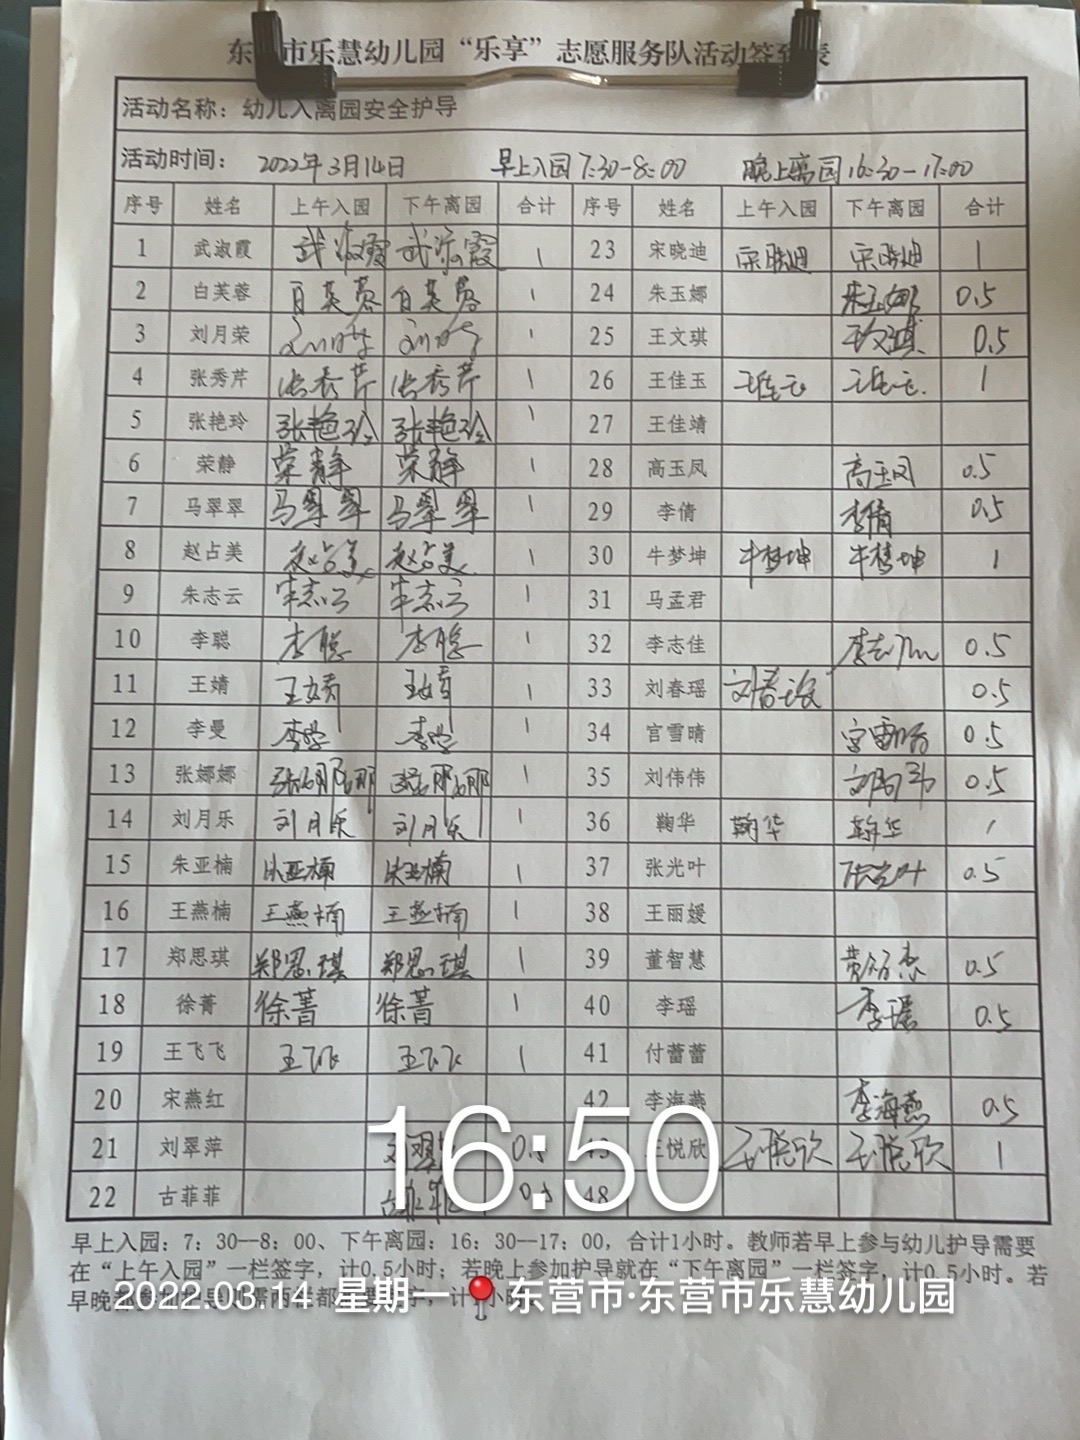 东营市乐慧幼儿园“乐享”志愿服务队活动签到表
活动名称：幼儿入离园安全护导
活动时间： 2022年3月14日 早上入园7:30-8:00 晚上离园16:30-17:00
序号 姓名 上午入园 下午离园 合计 序号 姓名 上午入园 下午离园 合计
1 武淑霞 武淑霞 武淑霞 1 23 宋晓迪 宋晓迪 宋晓迪 1
2 白芙蓉 白芙蓉 白芙蓉 1 24 朱玉娜 朱玉娜 0.5
3 刘月荣 刘月荣 刘月荣 1 25 王文琪 王文琪 0.5
4 张秀芹 张秀芹 张秀芹 1 26 王佳玉 王佳玉 王佳玉 1
5 张艳玲 张艳玲 张艳玲 1 27 王佳靖
6 荣静 荣静 荣静 1 28 高玉凤 高玉凤 0.5
7 马翠翠 马翠翠 马翠翠 1 29 李倩 李倩 0.5
8 赵占美 赵占美 赵占美 1 30 牛梦坤 牛梦坤 牛梦坤 1
9 朱志云 朱志云 朱志云 1 31 马孟君
10 李聪 李聪 李聪 1 32 李志佳 李志佳 0.5
11 王婧 王婧 王婧 1 33 刘春瑶 刘春瑶 0.5
12 李曼 李曼 李曼 1 34 宫雪晴 宫雪晴 0.5
13 张娜娜 张娜娜 张娜娜 1 35 刘伟伟 刘伟伟 0.5
14 刘月乐 刘月乐 刘月乐 1 36 鞠华 鞠华 鞠华 1
15 朱亚楠 朱亚楠 朱亚楠 1 37 张光叶 张光叶 0.5
16 王燕楠 王燕楠 王燕楠 1 38 王丽媛
17 郑思琪 郑思琪 郑思琪 1 39 董智慧 0.5
18 徐菁 徐菁 徐菁 1 40 李瑶 李瑶 0.5
19 王飞飞 王飞飞 王飞飞 1 41 付蕾蕾
20 宋燕红 42 李海燕 李海燕 0.5
21 刘翠萍 0.5 43 王悦欣 王悦欣 王悦欣 1
22 古菲菲 古菲菲 0.5 48
16:50
早上入园：7：30—8：00、下午离园：16：30—17：00，合计1小时。教师若早上参与幼儿护导需要
在“上午入园”一栏签字，计0.5小时；若晚上参加护导就在“下午离园”一栏签字，计0.5小时。若
2022.03.14 星期一 东营市·东营市乐慧幼儿园